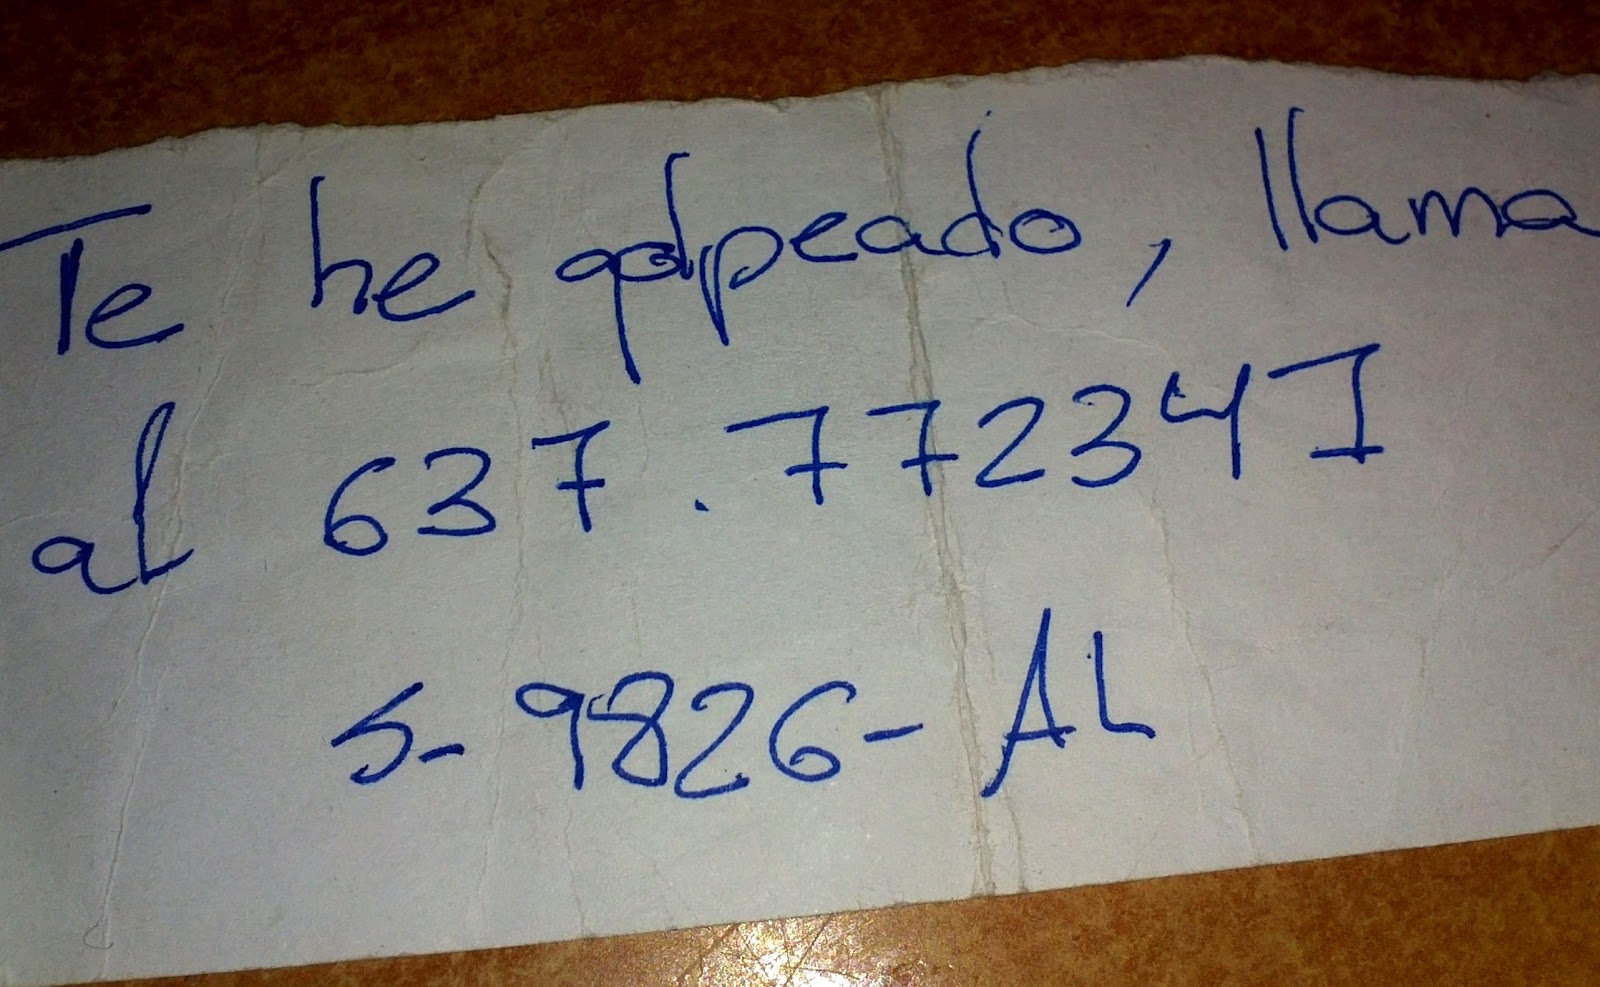 Te he golpeado, llama
al 637.772341
S-9826-AL